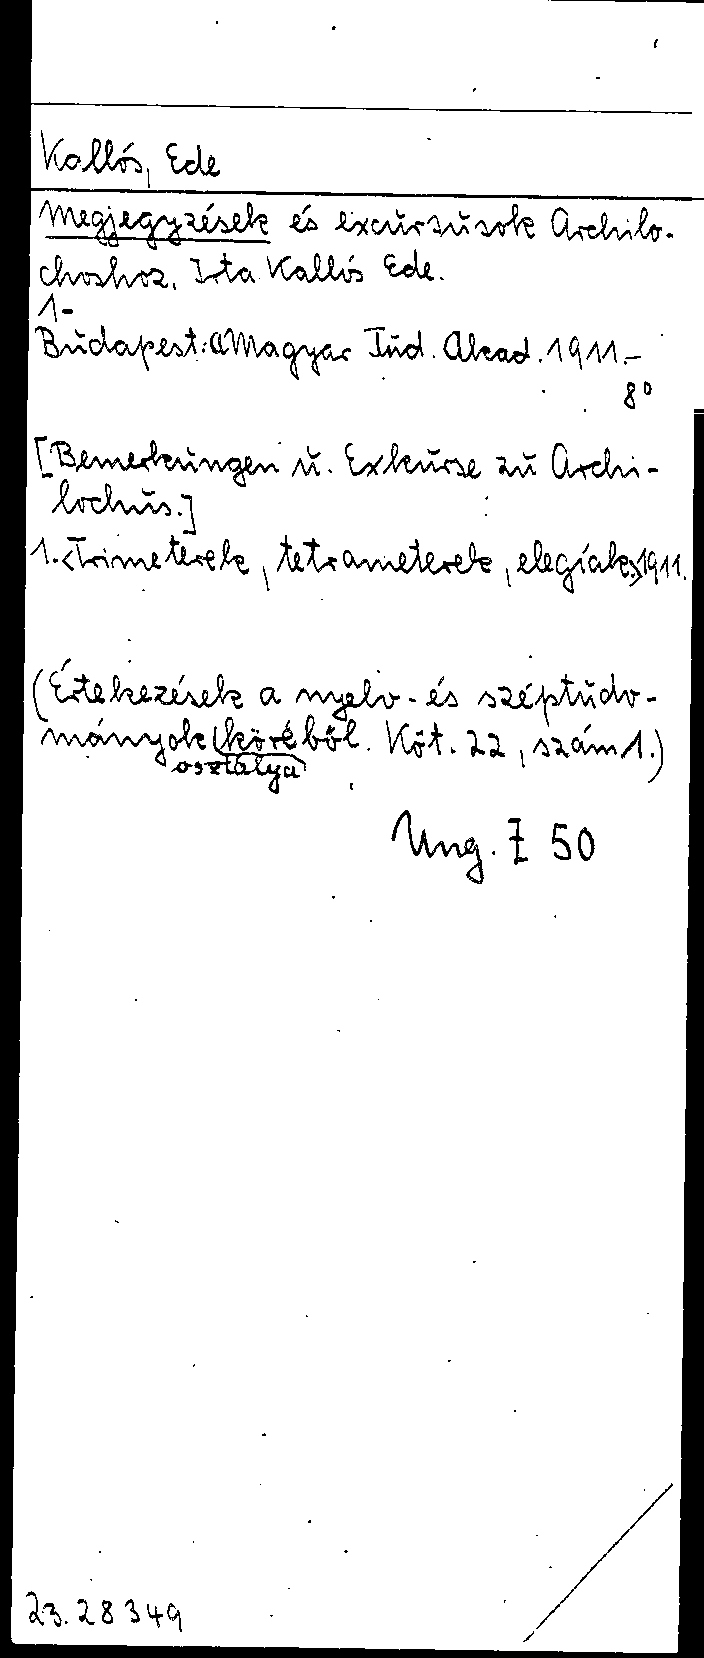 Kallós, Ede
Megjegyzések és excursusok Archilo-
choshoz. Irta Kallós Ede.
1-
Budapest: a Magyar Tud. Akad. 1911.-
8°
[Bemerkungen u. Exkurse zu Archi-
lochus.]
1. <Trimeterek, tetrameterek, elegiák.> 1911.
(Értekezések a nyelv- és széptudo-
mányok (köréből. Köt. 22, szám 1.)
osztálya)
Ung. Z 50
23.28349